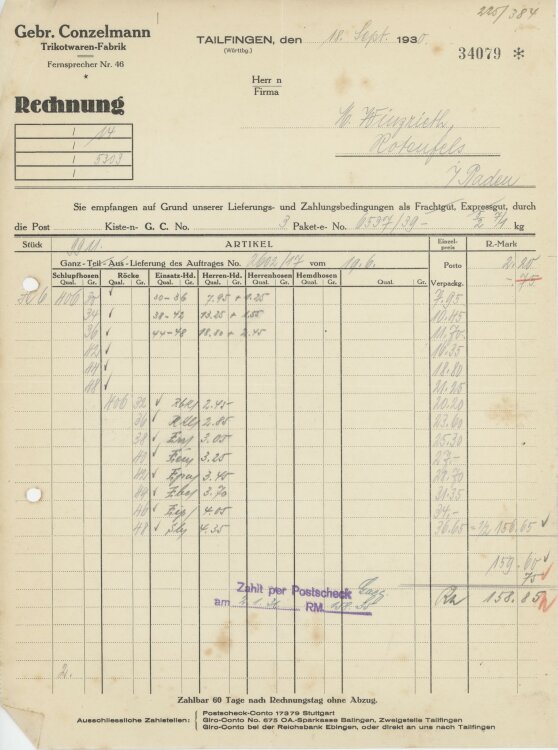 225/384
Gebr. Conzelmann
Trikotwaren-Fabrik
Fernsprecher Nr. 46
*
TAILFINGEN, den 18. Sept. 1930.
(Württbg.)
34079 *
Herr n
Firma
Rechnung
14
5303
Rotenfels
i/Baden
Sie empfangen auf Grund unserer Lieferungs- und Zahlungsbedingungen als Frachtgut, Expressgut, durch
die Post Kiste-n G. C. No. 3 Paket-e- No. 6537/39 kg
Stück ARTIKEL Einzel-preis R.-Mark
Ganz - Teil - Aus - Lieferung des Auftrages No. 2602/17 vom 19.6. Porto 2.20
Schlupfhosen Röcke Einsatz-Hd. Herren-Hd. Herrenhosen Hemdhosen Verpackg. 75
Qual. Gr. Qual. Gr. Qual. Gr. Qual. Gr. Qual. Gr. Qual. Gr. Qual. Gr.
406 30-36 7.95 + 1.25 7.95
34 38-42 13.25 + 1.55 10.45
36 44-48 18.80 + 2.45 11.70
42 14.35
44 18.80
48 21.20
406 32 2.45 20.20
36 2.85 23.60
38 3.05 25.30
40 3.25 27.-
42 3.45 29.70
44 3.70 31.35
46 4.05 34.-
48 4.35 36.65 = 1/2 156.65
159.60
75
158.85
Zahlt per Postscheck
am RM.
2.
Zahlbar 60 Tage nach Rechnungstag ohne Abzug.
Ausschliessliche Zahlstellen:
Postscheck-Conto 17379 Stuttgart
Giro-Conto No. 675 OA.-Sparkasse Balingen, Zweigstelle Tailfingen
Giro-Conto bei der Reichsbank Ebingen, oder direkt an uns nach Tailfingen